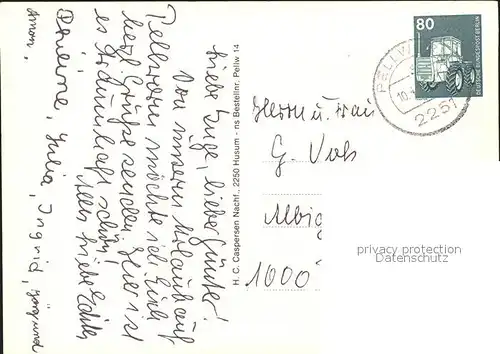 Liebe Inge, lieber Günter!
Von unserem Urlaub auf
Pellworm möchte ich Euch
herzl. Grüße senden. Hier ist
es traumhaft schön!
Alles Liebe
Julia, Ingrid,
H. C. Caspersen Nachf., 2250 Husum - ns Bestellnr. Pellw 14
Herrn u. Frau
G. Vahs
1000
80
DEUTSCHE BUNDESPOST BERLIN
PELLW
10.
2251
privacy protection
© Veikkos